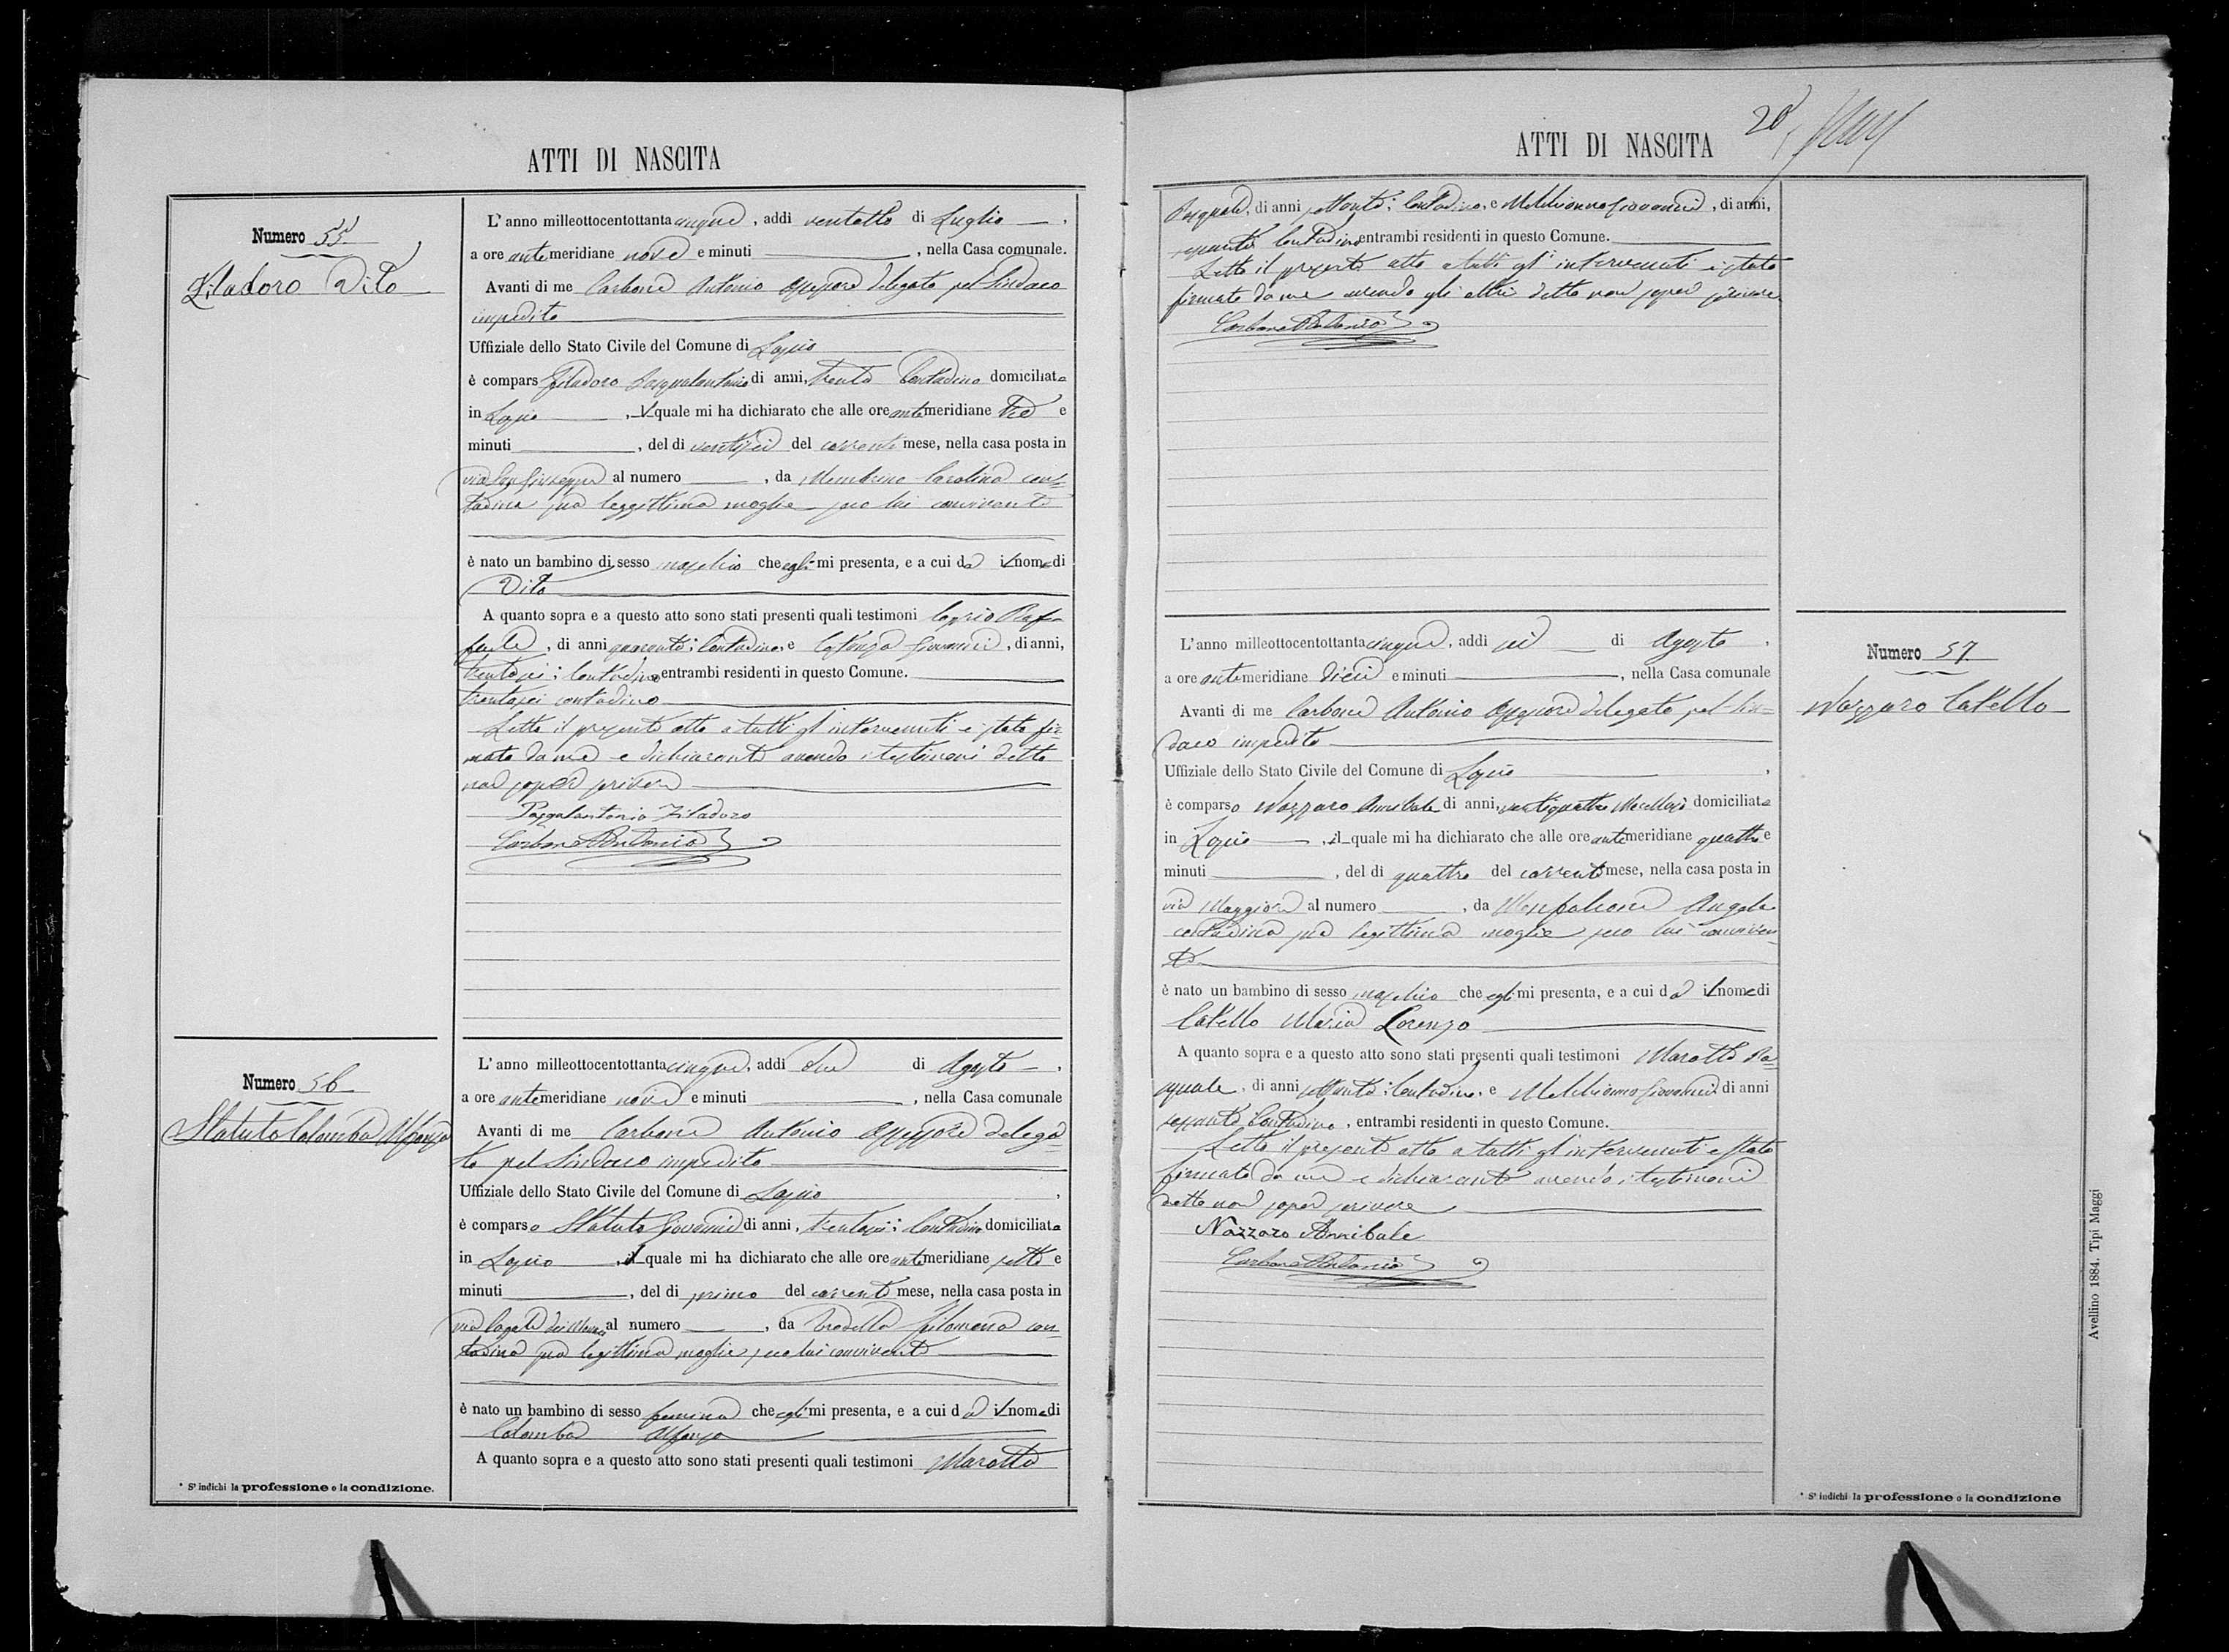 ATTI DI NASCITA
Numero 55
Filadoro Vito
L'anno milleottocentottantacinque, addi ventotto di Luglio,
a ore antimeridiane nove e minuti , nella Casa comunale.
Avanti di me Carbone Antonio Assessore delegato pel Sindaco
impedito
Uffiziale dello Stato Civile del Comune di Lapio
è compars Filadoro Pasqualantonio di anni, trenta Contadino domiciliato
in Lapio , il quale mi ha dichiarato che alle ore antimeridiane tre e
minuti , del di ventisei del corrente mese, nella casa posta in
via San Giuseppe al numero , da Carolina con-
tadina sua leggittima moglie seco lui convivente
è nato un bambino di sesso maschio che egli mi presenta, e a cui da il nome di
Vito
A quanto sopra e a questo atto sono stati presenti quali testimoni Raf-
faele, di anni quaranta; Contadino, e Giovanni, di anni,
trentasei; Contadino entrambi residenti in questo Comune.
trentasei contadino
Letto il presente atto a tutti gl'intervenuti è stato fir-
mato da me e dichiarante avendo i testimoni detto
non saper scrivere
Pasqualantonio Filadoro
Carbone Antonio
Numero 56
Statuto Colomba Alfonsa
L'anno milleottocentottantacinque, addi due di Agosto,
a ore antimeridiane nove e minuti , nella Casa comunale
Avanti di me Carbone Antonio Assessore delega-
to pel Sindaco impedito
Uffiziale dello Stato Civile del Comune di Lapio ,
è comparso Statuto Giovanni di anni, trentasei; Contadino domiciliato
in Lapio , il quale mi ha dichiarato che alle ore antimeridiane sette e
minuti , del di primo del corrente mese, nella casa posta in
via al numero , da Filomena con-
tadina sua legittima moglie, seco lui convivente
è nato un bambino di sesso femmina che egli mi presenta, e a cui da il nome di
Colomba Alfonsa
A quanto sopra e a questo atto sono stati presenti quali testimoni Marotta
* S'indichi la professione o la condizione.
ATTI DI NASCITA
20
Pasquale, di anni settanta; Contadino, e Melchionna Giovanni, di anni,
sessanta Contadino entrambi residenti in questo Comune.
Letto il presente atto a tutti gl'intervenuti è stato
firmato da me avendo gli altri detto non saper scrivere
Carbone Antonio
L'anno milleottocentottantacinque, addi sei di Agosto,
a ore antimeridiane dieci e minuti , nella Casa comunale
Avanti di me Carbone Antonio Assessore delegato pel Sin-
daco impedito
Uffiziale dello Stato Civile del Comune di Lapio ,
è comparso Nazzaro Annibale di anni, ventiquattro Macellaio domiciliato
in Lapio , il quale mi ha dichiarato che alle ore antimeridiane quattro e
minuti , del di quattro del corrente mese, nella casa posta in
via Maggiore al numero , da Angela
contadina sua legittima moglie seco lui conviven-
te
è nato un bambino di sesso maschio che egli mi presenta, e a cui da il nome di
Catello Maria Lorenzo
A quanto sopra e a questo atto sono stati presenti quali testimoni Marotta Pa-
squale, di anni settanta; Contadino, e Melchionna Giovanni di anni
sessanta Contadino, entrambi residenti in questo Comune.
Letto il presente atto a tutti gl'intervenuti è stato
firmato da me e dichiarante avendo i testimoni
detto non saper scrivere
Nazzaro Annibale
Carbone Antonio
Numero 57
Nazzaro Catello
* S'indichi la professione o la condizione
Avellino 1884. Tipi Maggi